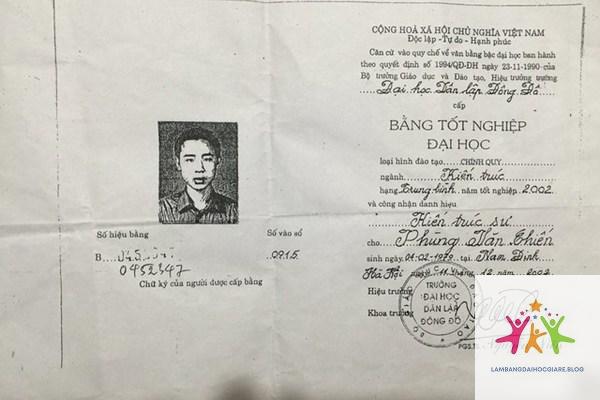 CỘNG HOÀ XÃ HỘI CHỦ NGHĨA VIỆT NAM
Độc lập -Tự do - Hạnh phúc
Căn cứ vào quy chế về văn bằng bậc đại học ban hành
theo quyết định số 1994/QĐ-ĐH ngày 23-11-1990 của
Bộ trưởng Giáo dục và Đào tạo, Hiệu trưởng trường
Đại học Dân lập Đông Đô
cấp
BẰNG TỐT NGHIỆP
ĐẠI HỌC
loại hình đào tạo CHÍNH QUY
ngành Kiến trúc
hạng Trung bình năm tốt nghiệp 2002
và công nhận danh hiệu
Kiến trúc sư
cho Phùng Văn Chiến
sinh ngày 01-02-1979 tại Nam Định
Hà Nội ngày 11 tháng 12 năm 2002
Hiệu trưởng
Khoa trưởng
TRƯỜNG
ĐẠI HỌC
DÂN LẬP
ĐÔNG ĐÔ
PGS.TS
Số hiệu bằng
Số vào sổ
B
0915
0452347
Chữ ký của người được cấp bằng
LAMBANGDAIHOCGIARE.BLOG